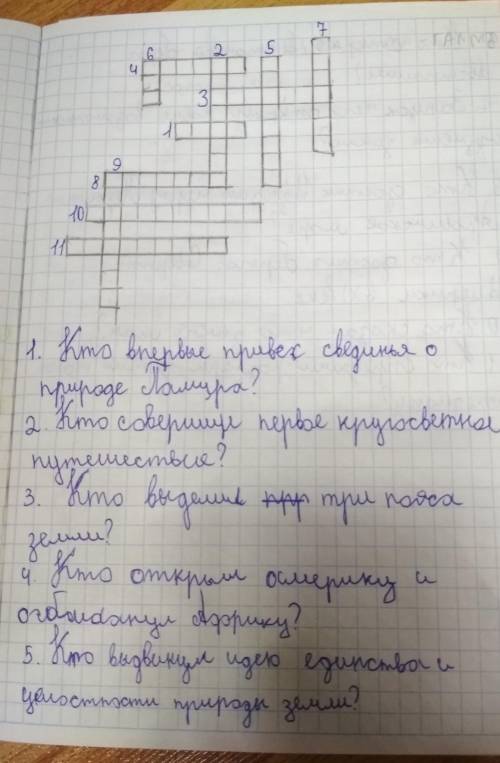 7
6 2 5
4
3
1
9
8
10
11
1. Кто впервые привех свединья о
природе Памира?
2. Кто совершил первое кругосветное
путешествие?
3. Кто выделил три пояса
земли?
4. Кто открыл осмерику и
Африку?
5. Кто выдвинул идею единства и
целостности природы земли?